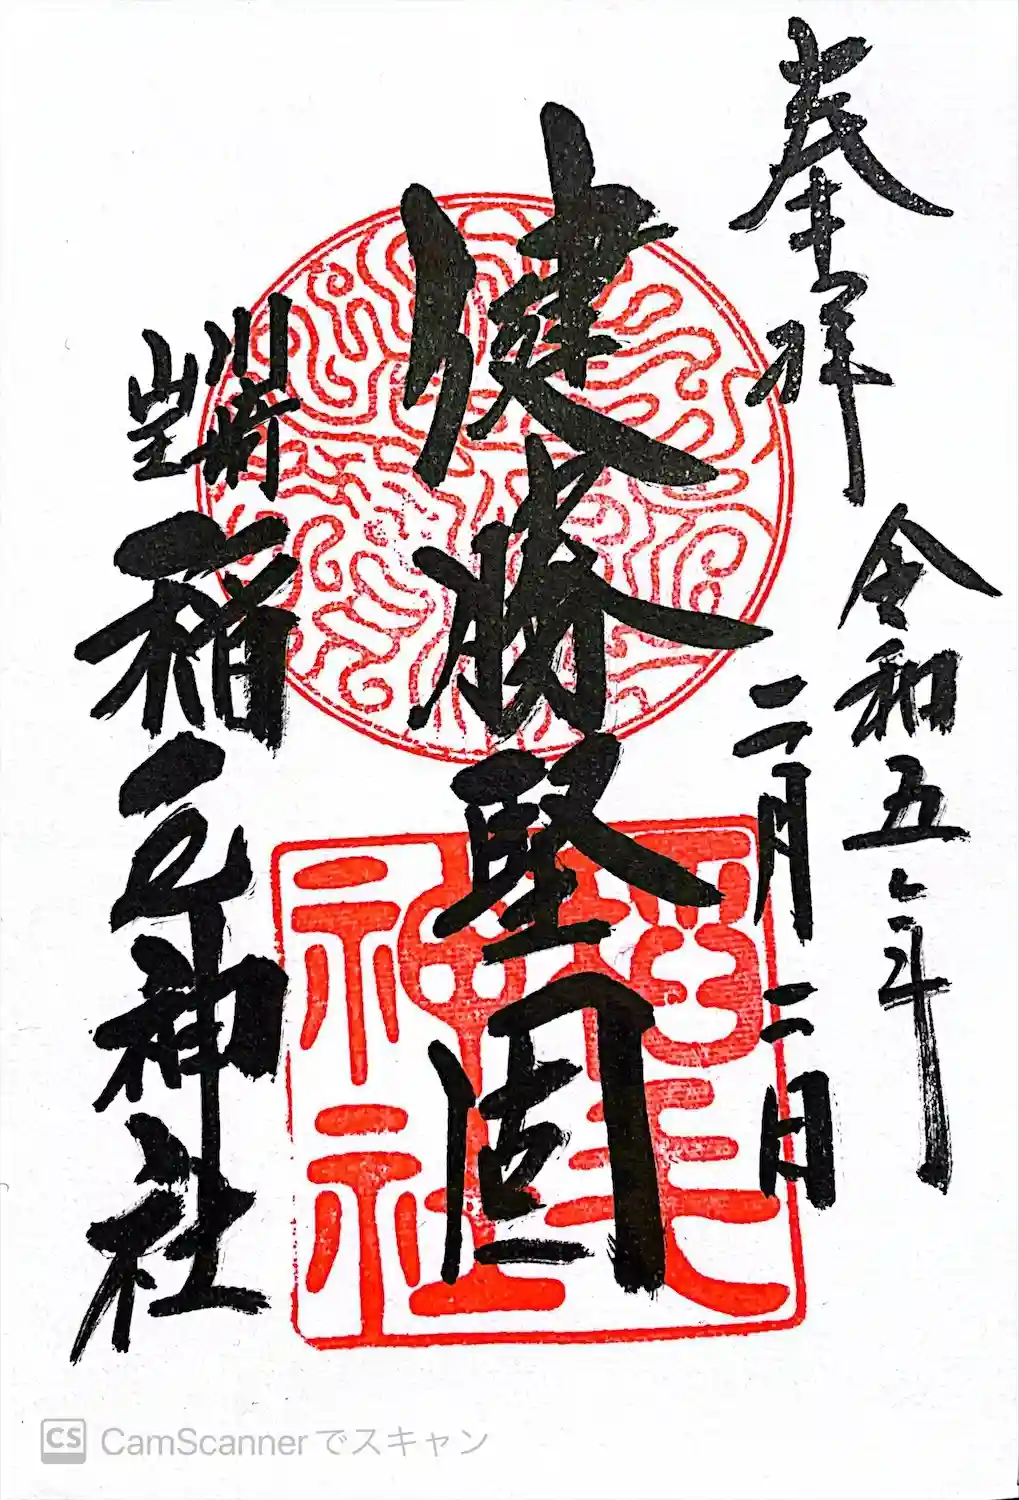 奉拝
令和五年
二月二日
健勝堅固
川崎
堀
稲毛神社
稲毛神社
CS CamScannerでスキャン